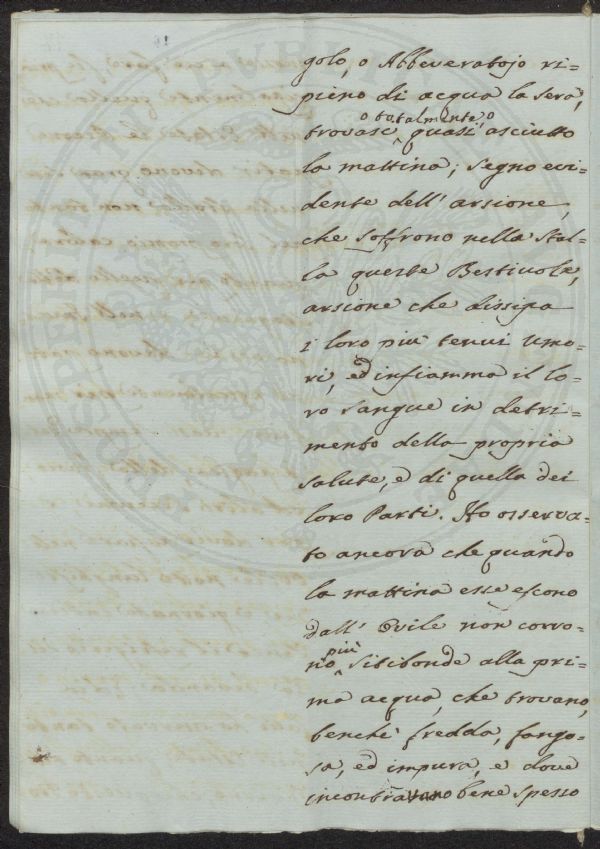 golo, o Abbeveratojo ri-
pieno di acqua la sera,
o totalmente, o
trovasi quasi asciutto
la mattina; segno evi-
dente dell' arsione,
che soffrono nella Stal-
la queste Bestivole,
arsione che dissipa
i loro più tenui umo-
ri, ed infiamma il lo-
ro sangue in detri-
mento della propria
salute, e di quella dei
loro Parti. Ho osserva-
to ancora che quando
la mattina esse escono
dall' Ovile non corro-
più
no sitibonde alla pri-
ma acqua, che trovano,
benchè fredda, fango-
sa, ed impura, e dove
incontravano bene spesso